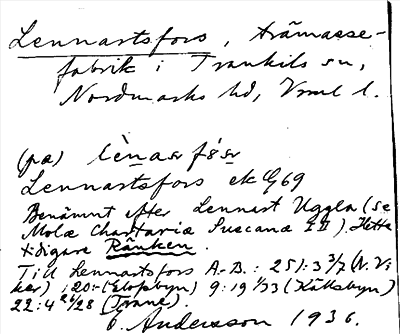 Lennartsfors, trämasse-
fabrik i Trankils sn,
Nordmarks hd, Vrml l.
(pa) lènasr fó̤sr
Lennartsfors ek G69
Benämnt efter Lennart Uggla (se
Molæ Chartariæ Suecanæ II). Hette
tidigare Ränken.
Till Lennartsfors A.-B.: 25/: 3 3/7 (N. Vi
ker) ; 20:- (Elofsbyn) 9:19 1/33 (Källsbyn)
22:4 26/28 (Trane).
E. Andersson 1936.